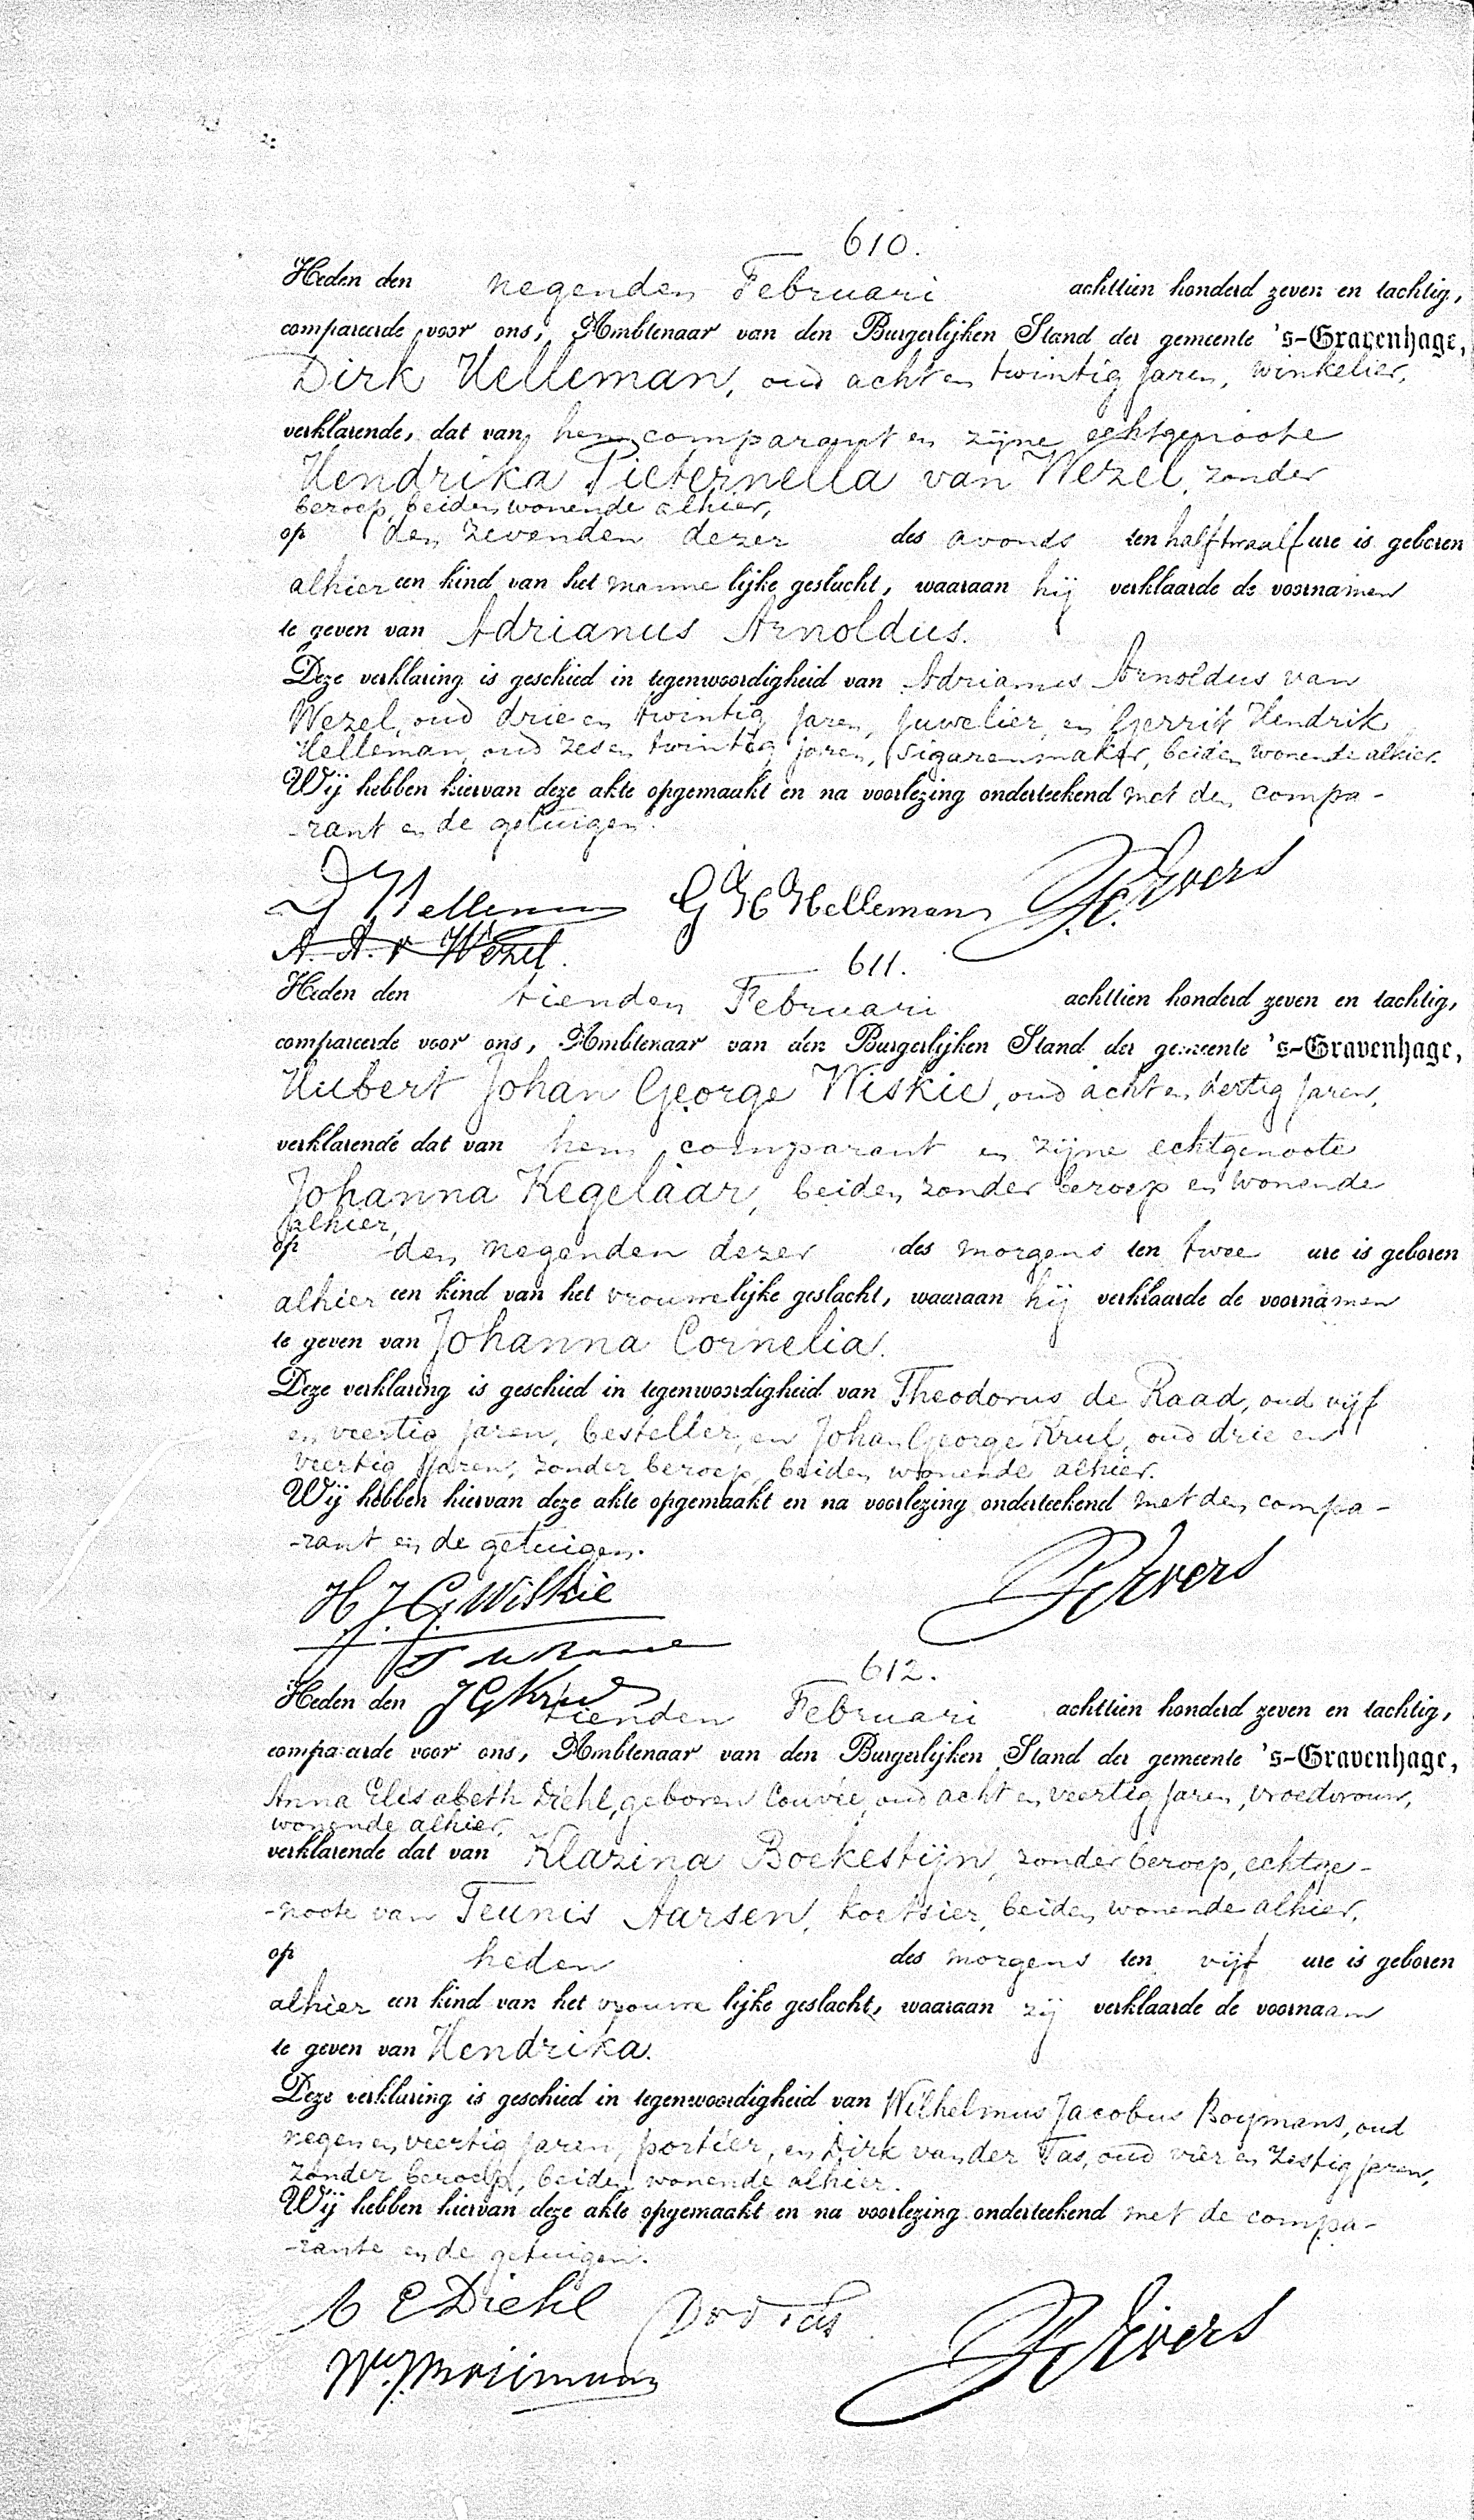 610.
Heden den negenden Februari achttien honderd zeven en tachtig,
compareerde voor ons, Ambtenaar van den Burgerlijken Stand der gemeente 's-Gravenhage,
Dirk Helleman, oud acht en twintig jaren, winkelier,
verklarende, dat van hem comparant en zijne echtgenoote
Hendrika Pieternella van Wezel, zonder
beroep, beiden wonende alhier,
op den zevenden dezer des avonds ten half twaalf ure is geboren
alhier een kind van het mannelijke geslacht, waaraan hij verklaarde de voornamen
te geven van Adrianus Arnoldus.
Deze verklaring is geschied in tegenwoordigheid van Adrianus Arnoldus van
Wezel, oud drie en twintig jaren, juwelier, en Gerrit Hendrik
Helleman, oud zes en twintig jaren, sigarenmaker, beiden wonende alhier.
Wij hebben hiervan deze akte opgemaakt en na voorlezing onderteekend met den compa-
-rant en de getuigen.
D Helleman G H Helleman Evers
A. A. v Wezel.
611.
Heden den tienden Februari achttien honderd zeven en tachtig,
compareerde voor ons, Ambtenaar van den Burgerlijken Stand der gemeente 's-Gravenhage,
Hubert Johan George Wiskie, oud acht en dertig jaren,
verklarende dat van hem comparant en zijne echtgenoote
Johanna Kegelaar, beiden zonder beroep en wonende
alhier,
op den negenden dezer des morgens ten twee ure is geboren
alhier een kind van het vrouwelijke geslacht, waaraan hij verklaarde de voornamen
te geven van Johanna Cornelia.
Deze verklaring is geschied in tegenwoordigheid van Theodorus de Raad, oud vijf
en veertig jaren, besteller, en Johan George Krul, oud drie en
veertig jaren, zonder beroep, beiden wonende alhier.
Wij hebben hiervan deze akte opgemaakt en na voorlezing onderteekend met den compa-
-rant en de getuigen.
H. J. G. Wiskie Evers
612.
J G Krul
Heden den tienden Februari achttien honderd zeven en tachtig,
compareerde voor ons, Ambtenaar van den Burgerlijken Stand der gemeente 's-Gravenhage,
Anna Elisabeth Diehl, geboren Couvée, oud acht en veertig jaren, vroedvrouw,
wonende alhier,
verklarende dat van Klazina Boekestijn, zonder beroep, echtge-
-noote van Teunis Aarsen, koetsier, beiden wonende alhier,
op heden des morgens ten vijf ure is geboren
alhier een kind van het vrouwelijke geslacht, waaraan zij verklaarde de voornaam
te geven van Hendrika.
Deze verklaring is geschied in tegenwoordigheid van Wilhelmus Jacobus Boymans, oud
negen en veertig jaren, portier, en Dirk van der Tas, oud vier en zestig jaren,
zonder beroep, beiden wonende alhier.
Wij hebben hiervan deze akte opgemaakt en na voorlezing onderteekend met de compa-
-rante en de getuigen.
A E Diehl D v d Tas Evers